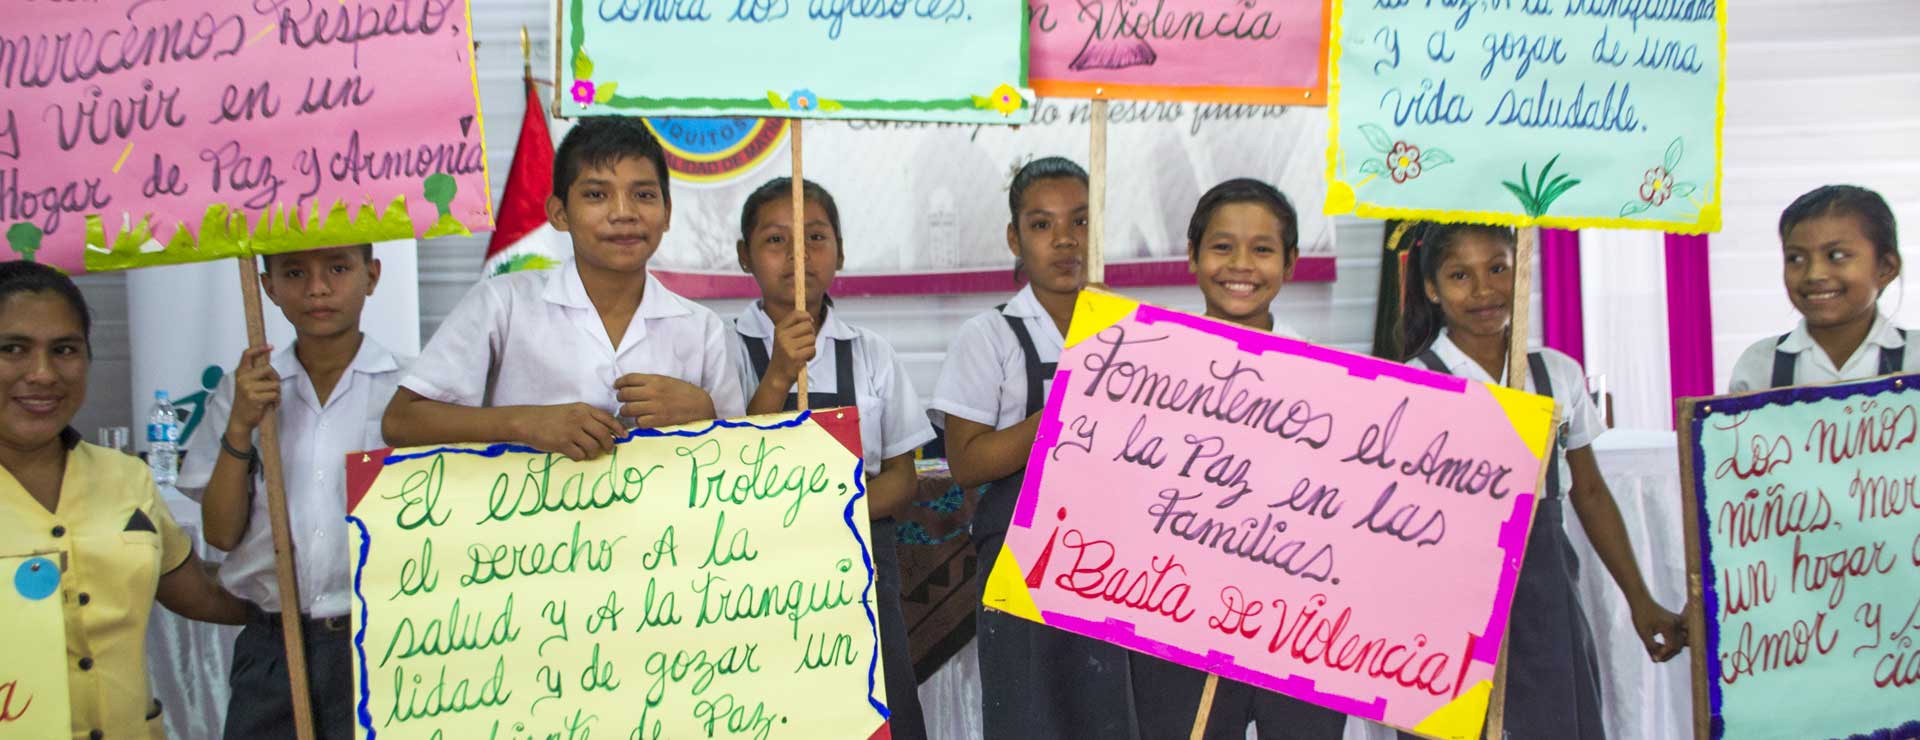 merecemos Respeto,
y vivir en un
Hogar de Paz y Armonía
contra los agresores.
Violencia
la Paz, A la tranquilidad
y a gozar de una
vida saludable.
QUITOS
nuestro futuro
El estado Protege,
el Derecho A la
salud y A la tranqui
lidad y de gozar un
de Paz.
Fomentemos el Amor
y la Paz en las
Familias.
¡Basta De Violencia!
Los niños
niñas, Mer
un hogar
Amor y